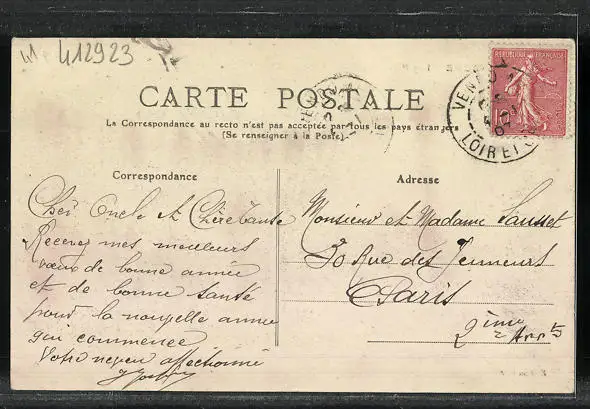 412923
REPUBLIQUE FRANÇAISE
10
VENDO
LOIR ET C
CARTE POSTALE
La Correspondance au recto n'est pas acceptée par tous les pays étrangers
(Se renseigner à la Poste)
Correspondance
Cher Oncle et Chère Tante
Recevez mes meilleurs
vœux de bonne année
et de bonne santé
pour la nouvelle année
qui commence
Votre neveu affectionné
Adresse
Monsieur et Madame Sausset
30 Rue des Jeuneurs
Paris
2ème Arrt